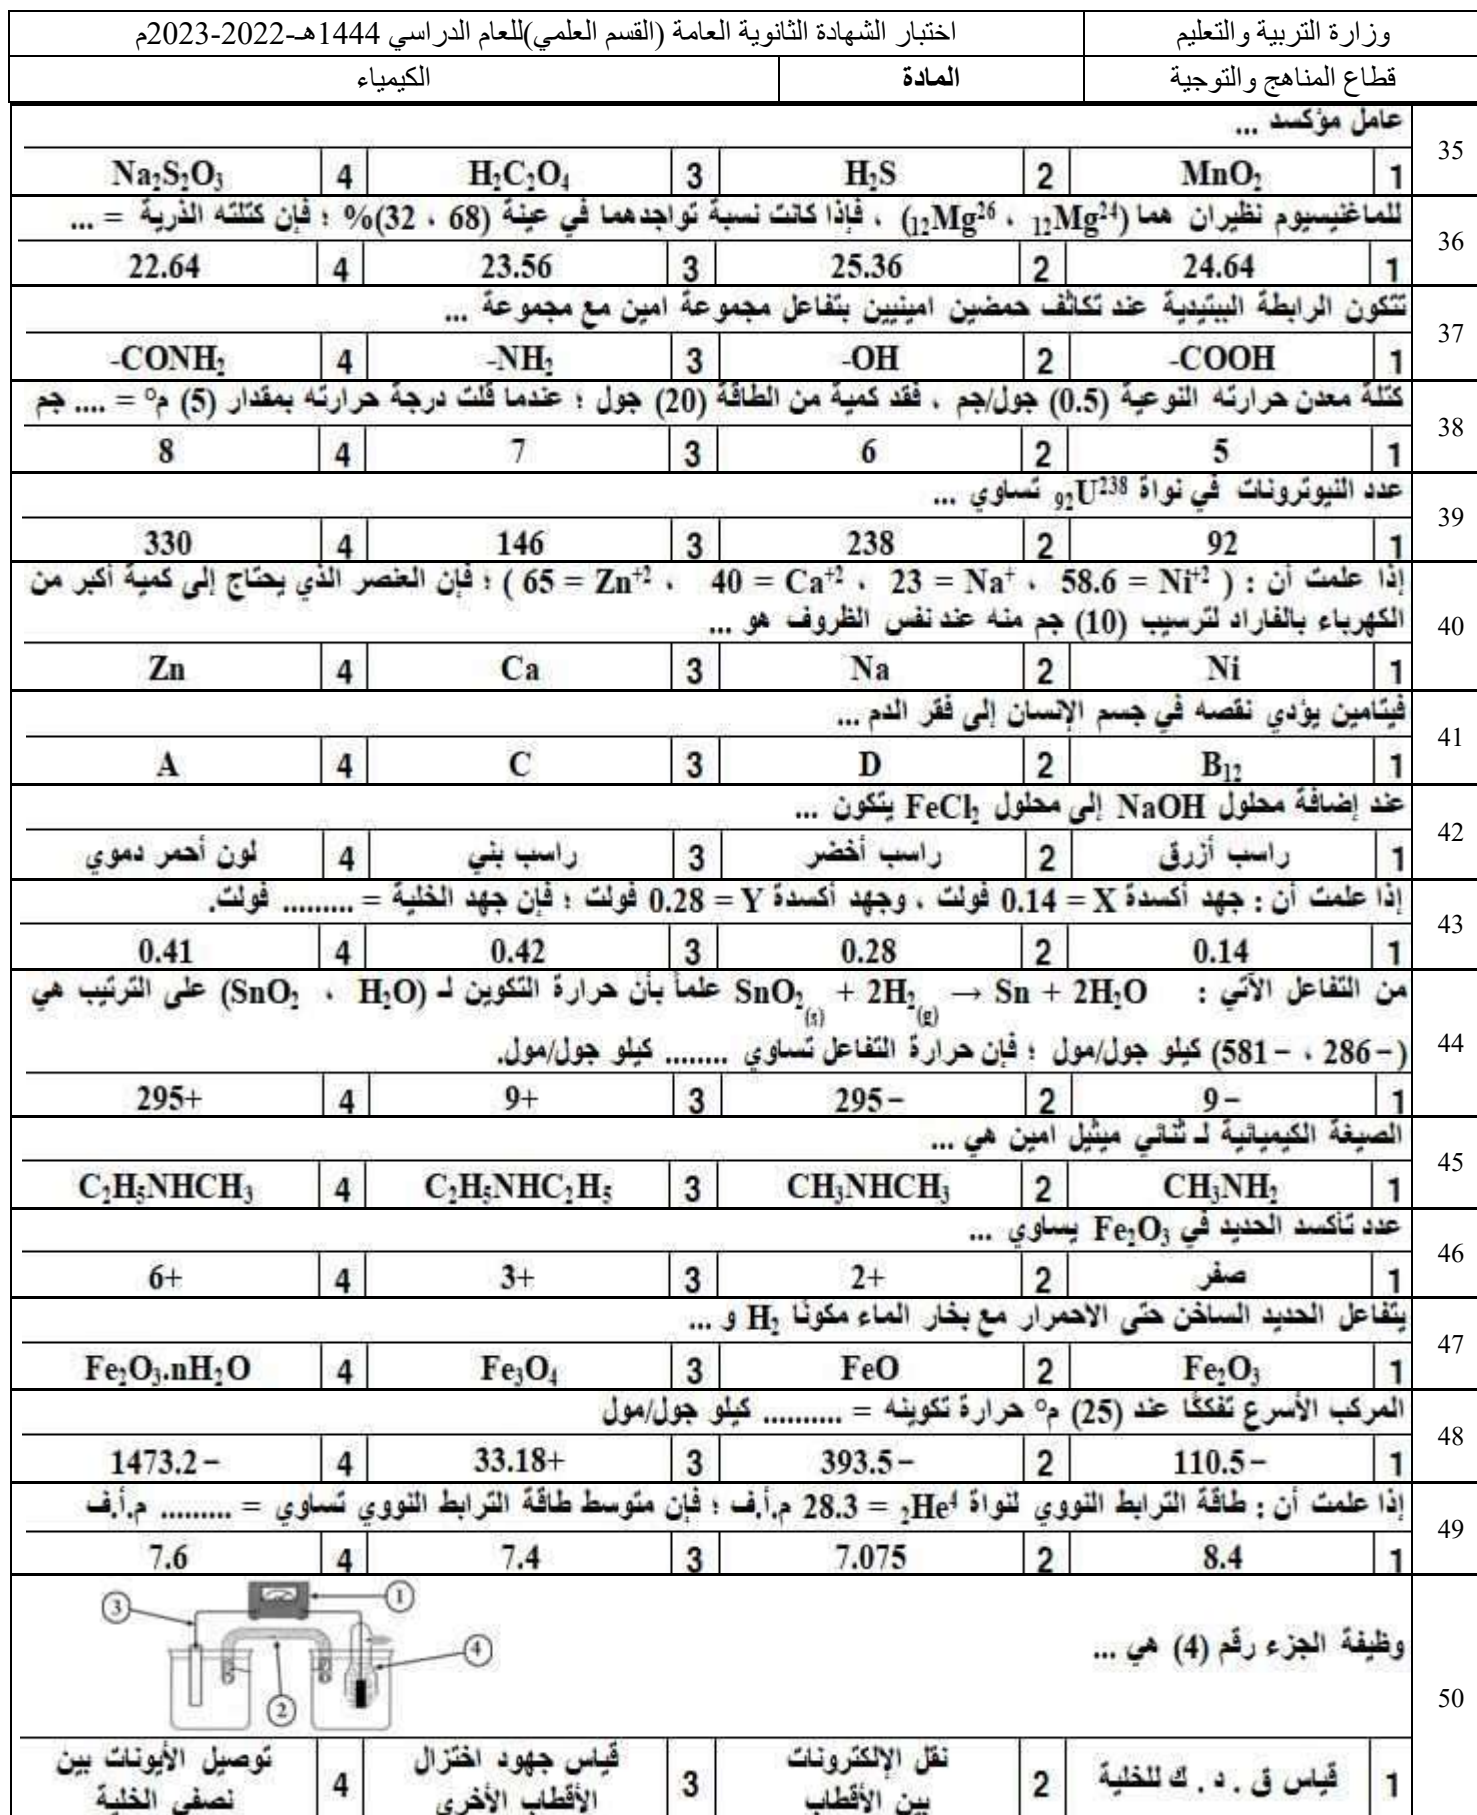 وزارة التربية والتعليم	اختبار الشهادة الثانوية العامة (القسم العلمي)للعام الدراسي 1444هـ-2022-2023م
قطاع المناهج والتوجية	المادة	الكيمياء
35 عامل مؤكسد ...
1 MnO₂	2 H₂S	3 H₂C₂O₄	4 Na₂S₂O₃
36 للماغنيسيوم نظيران هما (₁₂Mg²⁴ ، ₁₂Mg²⁶) ، فإذا كانت نسبة تواجدهما في عينة (68 ، 32)% ؛ فإن كتلته الذرية = ...
1 24.64	2 25.36	3 23.56	4 22.64
37 تتكون الرابطة الببتيدية عند تكاثف حمضين امينيين بتفاعل مجموعة امين مع مجموعة ...
1 -COOH	2 -OH	3 -NH₂	4 -CONH₂
38 كتلة معدن حرارته النوعية (0.5) جول/جم ، فقد كمية من الطاقة (20) جول ؛ عندما قلت درجة حرارته بمقدار (5) م° = .... جم
1 5	2 6	3 7	4 8
39 عدد النيوترونات في نواة ₉₂U²³⁸ تساوي ...
1 92	2 238	3 146	4 330
40 إذا علمت أن : ( Ni⁺² = 58.6 ، Na⁺ = 23 ، Ca⁺² = 40 ، Zn⁺² = 65 ) ؛ فإن العنصر الذي يحتاج إلى كمية أكبر من
الكهرباء بالفاراد لترسيب (10) جم منه عند نفس الظروف هو ...
1 Ni	2 Na	3 Ca	4 Zn
41 فيتامين يؤدي نقصه في جسم الإنسان إلى فقر الدم ...
1 B₁₂	2 D	3 C	4 A
42 عند إضافة محلول NaOH إلى محلول FeCl₂ يتكون ...
1 راسب أزرق	2 راسب أخضر	3 راسب بني	4 لون أحمر دموي
43 إذا علمت أن : جهد أكسدة X = 0.14 فولت ، وجهد أكسدة Y = 0.28 فولت ؛ فإن جهد الخلية = ......... فولت.
1 0.14	2 0.28	3 0.42	4 0.41
44 من التفاعل الآتي : SnO₂(s) + 2H₂(g) → Sn + 2H₂O علماً بأن حرارة التكوين لـ (H₂O ، SnO₂) على الترتيب هي
(−286 ، −581) كيلو جول/مول ؛ فإن حرارة التفاعل تساوي ........ كيلو جول/مول.
1 −9	2 −295	3 +9	4 +295
45 الصيغة الكيميائية لـ ثنائي ميثيل امين هي ...
1 CH₃NH₂	2 CH₃NHCH₃	3 C₂H₅NHC₂H₅	4 C₂H₅NHCH₃
46 عدد تأكسد الحديد في Fe₂O₃ يساوي ...
1 صفر	2 +2	3 +3	4 +6
47 يتفاعل الحديد الساخن حتى الاحمرار مع بخار الماء مكونًا H₂ و ...
1 Fe₂O₃	2 FeO	3 Fe₃O₄	4 Fe₂O₃.nH₂O
48 المركب الأسرع تفككًا عند (25) م° حرارة تكوينه = .......... كيلو جول/مول
1 −110.5	2 −393.5	3 +33.18	4 −1473.2
49 إذا علمت أن : طاقة الترابط النووي لنواة ₂He⁴ = 28.3 م.أ.ف ؛ فإن متوسط طاقة الترابط النووي تساوي = ......... م.أ.ف
1 8.4	2 7.075	3 7.4	4 7.6
50 وظيفة الجزء رقم (4) هي ...
1
3
4
2
1 قياس ق . د . ك للخلية	2 نقل الإلكترونات بين الأقطاب	3 قياس جهود اختزال الأقطاب الأخرى	4 توصيل الأيونات بين نصفي الخلية